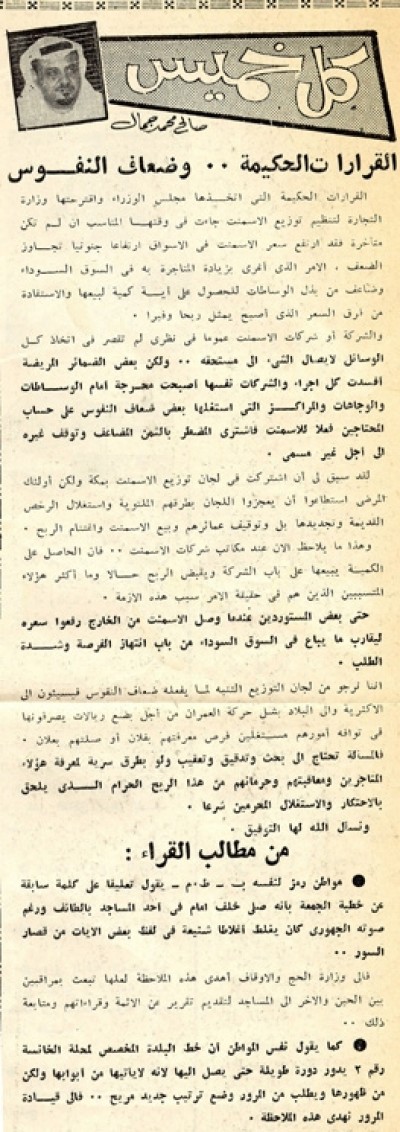 كل خميس
صالح محمد جمال
القرارات الحكيمة .. وضعاف النفوس
القرارات الحكيمة التى اتخذها مجلس الوزراء واقترحتها وزارة
التجارة لتنظيم توزيع الاسمنت جاءت فى وقتها المناسب ان لم تكن
متأخرة فقد ارتفع سعر الاسمنت فى الاسواق ارتفاعا جنونيا تجاوز
الضعف . الامر الذى أغرى بزيادة المتاجرة به فى السوق السوداء
وضاعف من بذل الوساطات للحصول على أية كمية لبيعها والاستفادة
من فرق السعر الذى أصبح يمثل ربحا وفيرا .
والشركة أو شركات الاسمنت عموما فى نظرى لم تقصر فى اتخاذ كل
الوسائل لايصال الشىء الى مستحقه .. ولكن بعض الضمائر المريضة
أفسدت كل اجراء والشركات نفسها اصبحت محرجة امام الوساطات
والوجاهات والمراكز التى استغلها بعض ضعاف النفوس على حساب
المحتاجين فعلا للاسمنت فاشترى المضطر بالثمن المضاعف وتوقف غيره
الى أجل غير مسمى .
لقد سبق لى أن اشتركت فى لجان توزيع الاسمنت بمكة ولكن أولئك
المرضى استطاعوا أن يعجزوا اللجان بطرقهم الملتوية واستغلال الرخص
القديمة وتجديدها بل وتوقيف عمائرهم وبيع الاسمنت واغتنام الربح .
وهذا ما يلاحظ الان عند مكاتب شركات الاسمنت .. فان الحاصل على
الكمية يبيعها على باب الشركة ويقبض الربح حالا وما أكثر هؤلاء
المتسببين الذين هم فى حقيقة الامر سبب هذه الازمة .
حتى بعض المستوردين عندما وصل الاسمنت من الخارج رفعوا سعره
ليقارب ما يباع فى السوق السوداء من باب انتهاز الفرصة وشدة
الطلب .
اننا نرجو من لجان التوزيع التنبه لما يفعله ضعاف النفوس فيسيئون الى
الاكثرية والى البلاد بشل حركة العمران من أجل بضع ريالات يصرفونها
فى توافه أمورهم مستغلين فرص معرفتهم بفلان أو صلتهم بعلان .
فالمسألة تحتاج الى بحث وتدقيق وتعقيب ولو بطرق سرية لمعرفة هؤلاء
المتاجرين ومعاقبتهم وحرمانهم من هذا الربح الحرام الذى يلحق
بالاحتكار والاستغلال المحرمين شرعا .
ونسأل الله لها التوفيق .
من مطالب القراء :
● مواطن رمز لنفسه بـ ـ ط.م ـ يقول تعليقا على كلمة سابقة
عن خطبة الجمعة بانه صلى خلف امام فى احد المساجد بالطائف ورغم
صوته الجهورى كان يغلط أغلاطا شنيعة فى لفظ بعض الايات من قصار
السور ..
فالى وزارة الحج والاوقاف أهدى هذه الملاحظة لعلها تبعث بمراقبين
بين الحين والاخر الى المساجد لتقديم تقرير عن الائمة وقراءاتهم ومتابعة
ذلك ..
● كما يقول نفس المواطن ان خط البلدة المخصص لمحلة الخانسة
رقم ٢ يدور دورة طويلة حتى يصل اليها لانه لاياتيها من أبوابها ولكن
من ظهورها ويطلب من المرور وضع ترتيب جديد مريح .. فالى قيادة
المرور نهدى هذه الملاحظة .